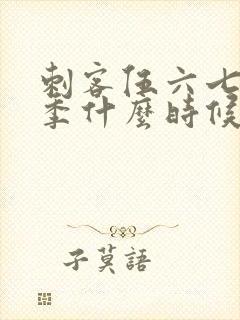 刺客伍六七
季什麼時候
子莫語